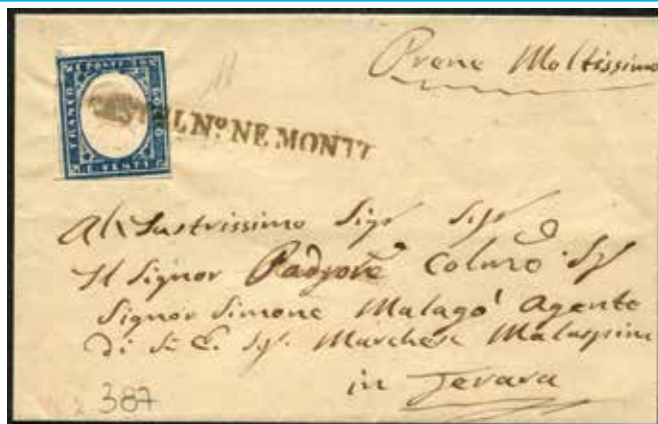 Preme Moltissimo
FRANCO POSTE BOLLO
CASTELNº NE MONTI
All Illustrissimo Sigr Sigr
Il Signor Padrone Colmo Sigr
Signor Simone Malagò Agente
di S. E. Sigr Marchese Malaspina
in Ferara
387